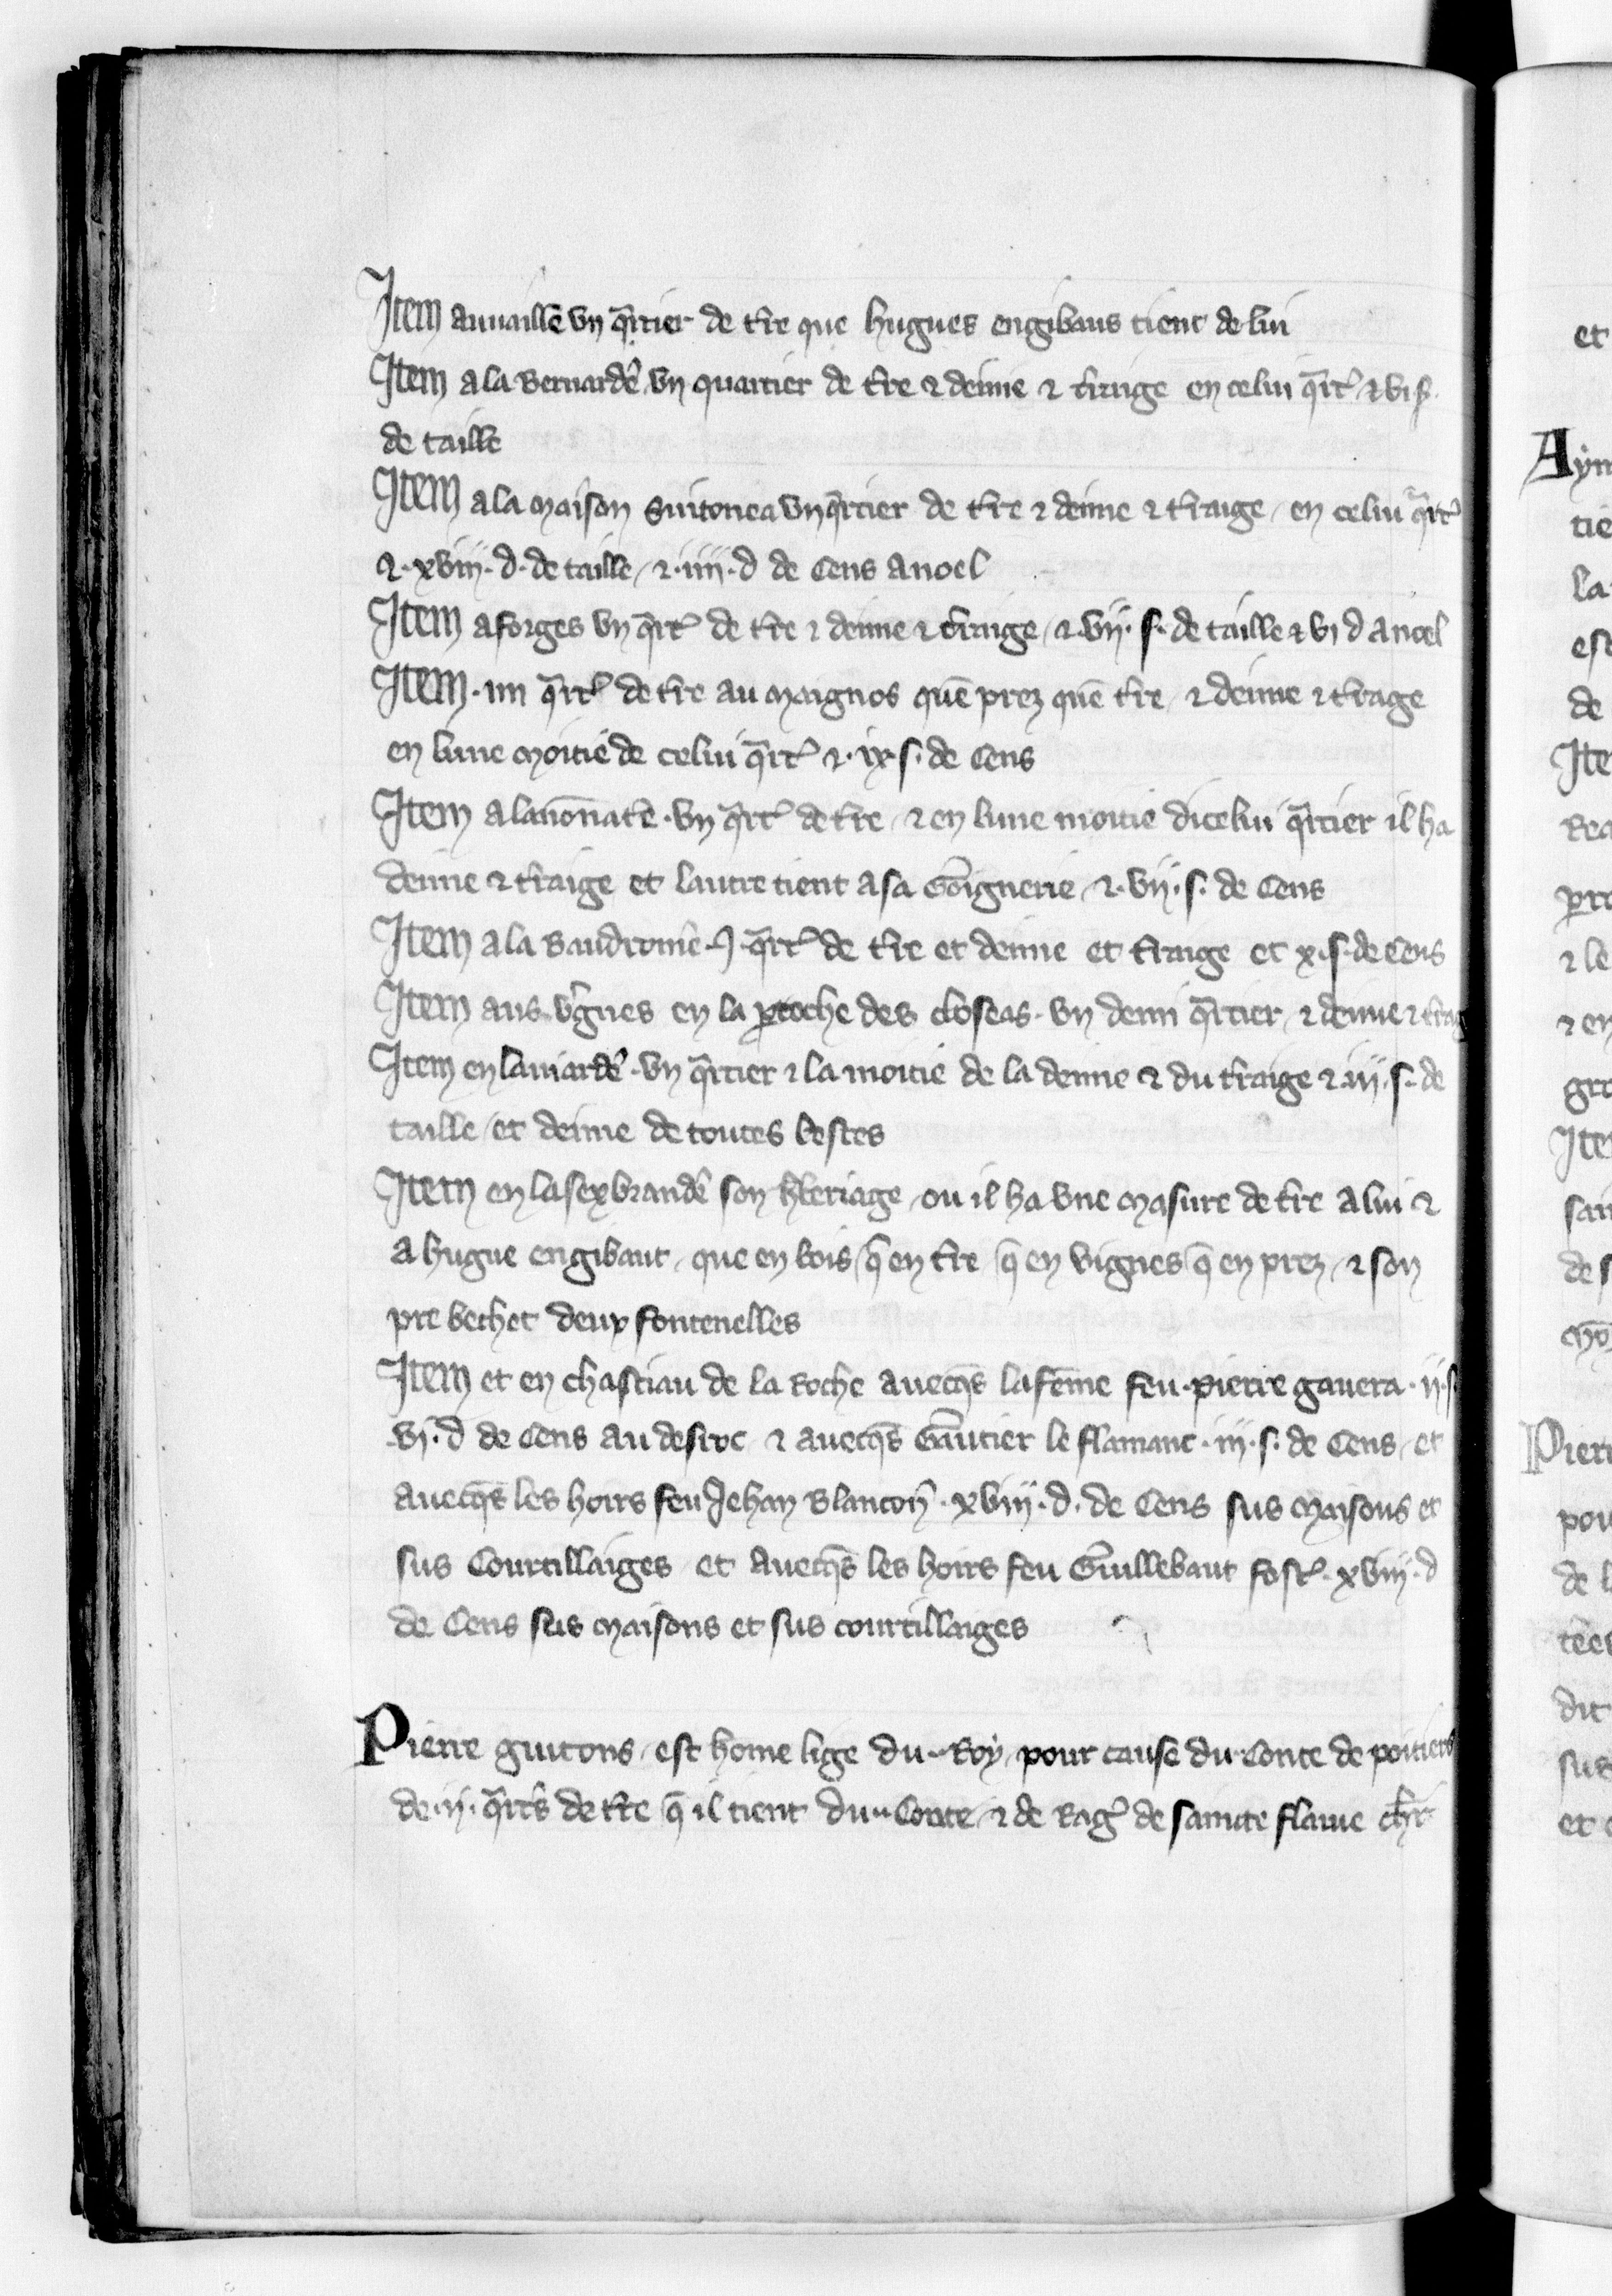 Item auuaille vn q̄rtier de tr̄e que hugues engibaus tient de lui
Item a la Bernardẽ vn quartier de tr̄e ⁊ deime ⁊ tr̄aige en celui q̄rt' ⁊ vi s.
de taille
Item a la maison Guitonea vn q̄rtier de tr̄e ⁊ deime ⁊ tr̄aige / en celui q̄rt'
⁊ . xviij . d . de taille / ⁊ . iiij . d de Cens a noel
Item a forges vn q̄rt' de tr̄e ⁊ deime ⁊ tr̄aige / ⁊ . vij . s . de taille ⁊ vi d a noel
Item . iiii q̄rt' de tr̄e au maignos quē prez quē tr̄e / ⁊ deime ⁊ tr̄age
en lune moitie de celui q̄rt' ⁊ . ix . s . de Cens
Item a . vn q̄rt' de tr̄e / ⁊ en lune moitie dicelui q̄rtier il ha
deime ⁊ tr̄aige et lautre tient a sa Gaignerie / ⁊ . vij . s . de Cens
Item a la Baudronie . J . q̄rt' de tr̄e et deime et tr̄aige et x . s . de Cens
Item aus v̾gnes en la ꝑroche des closeas . vn demi q̄rtier / ⁊ deime ⁊ trag
Item en . vn q̄rtier ⁊ la moitie de la deime ⁊ du tr̄aige ⁊ . iij . s . de
taille / et deime de toutes bestes
Item en lasexbrandẽ son hb̄eriage / ou il ha vne masure de tr̄e a lui ⁊
a hugue engibaut / que en bois / q̄ en tr̄e / q̄ en vignes / q̄ en prez / ⁊ son
pre bechet deux fontenelles
Item et en chastiau de la Roche auecq̄s la fēme feu . pierre gauera . ij . s
. vj . d de Cens au ⁊ auecq̄s Gautier le flamanc . iij . s . de Cens / et
auecq̄s les hoirs feu Jehan Blancoñ . xviij . d . de Cens sus maisons et
sus Courtillaiges / et auecq̄s les hoirs feu Guillebaut fost' . xviij . d
de Cens sus maisons et sus courtillaiges
Pierre guitons / est home lige du . Roy / pour cause du . Conte de poitiers
de . ij . q̄rt's de tr̄e q̄ il tient du . Conte / ⁊ de Rag' de saincte flaiue ch̄r